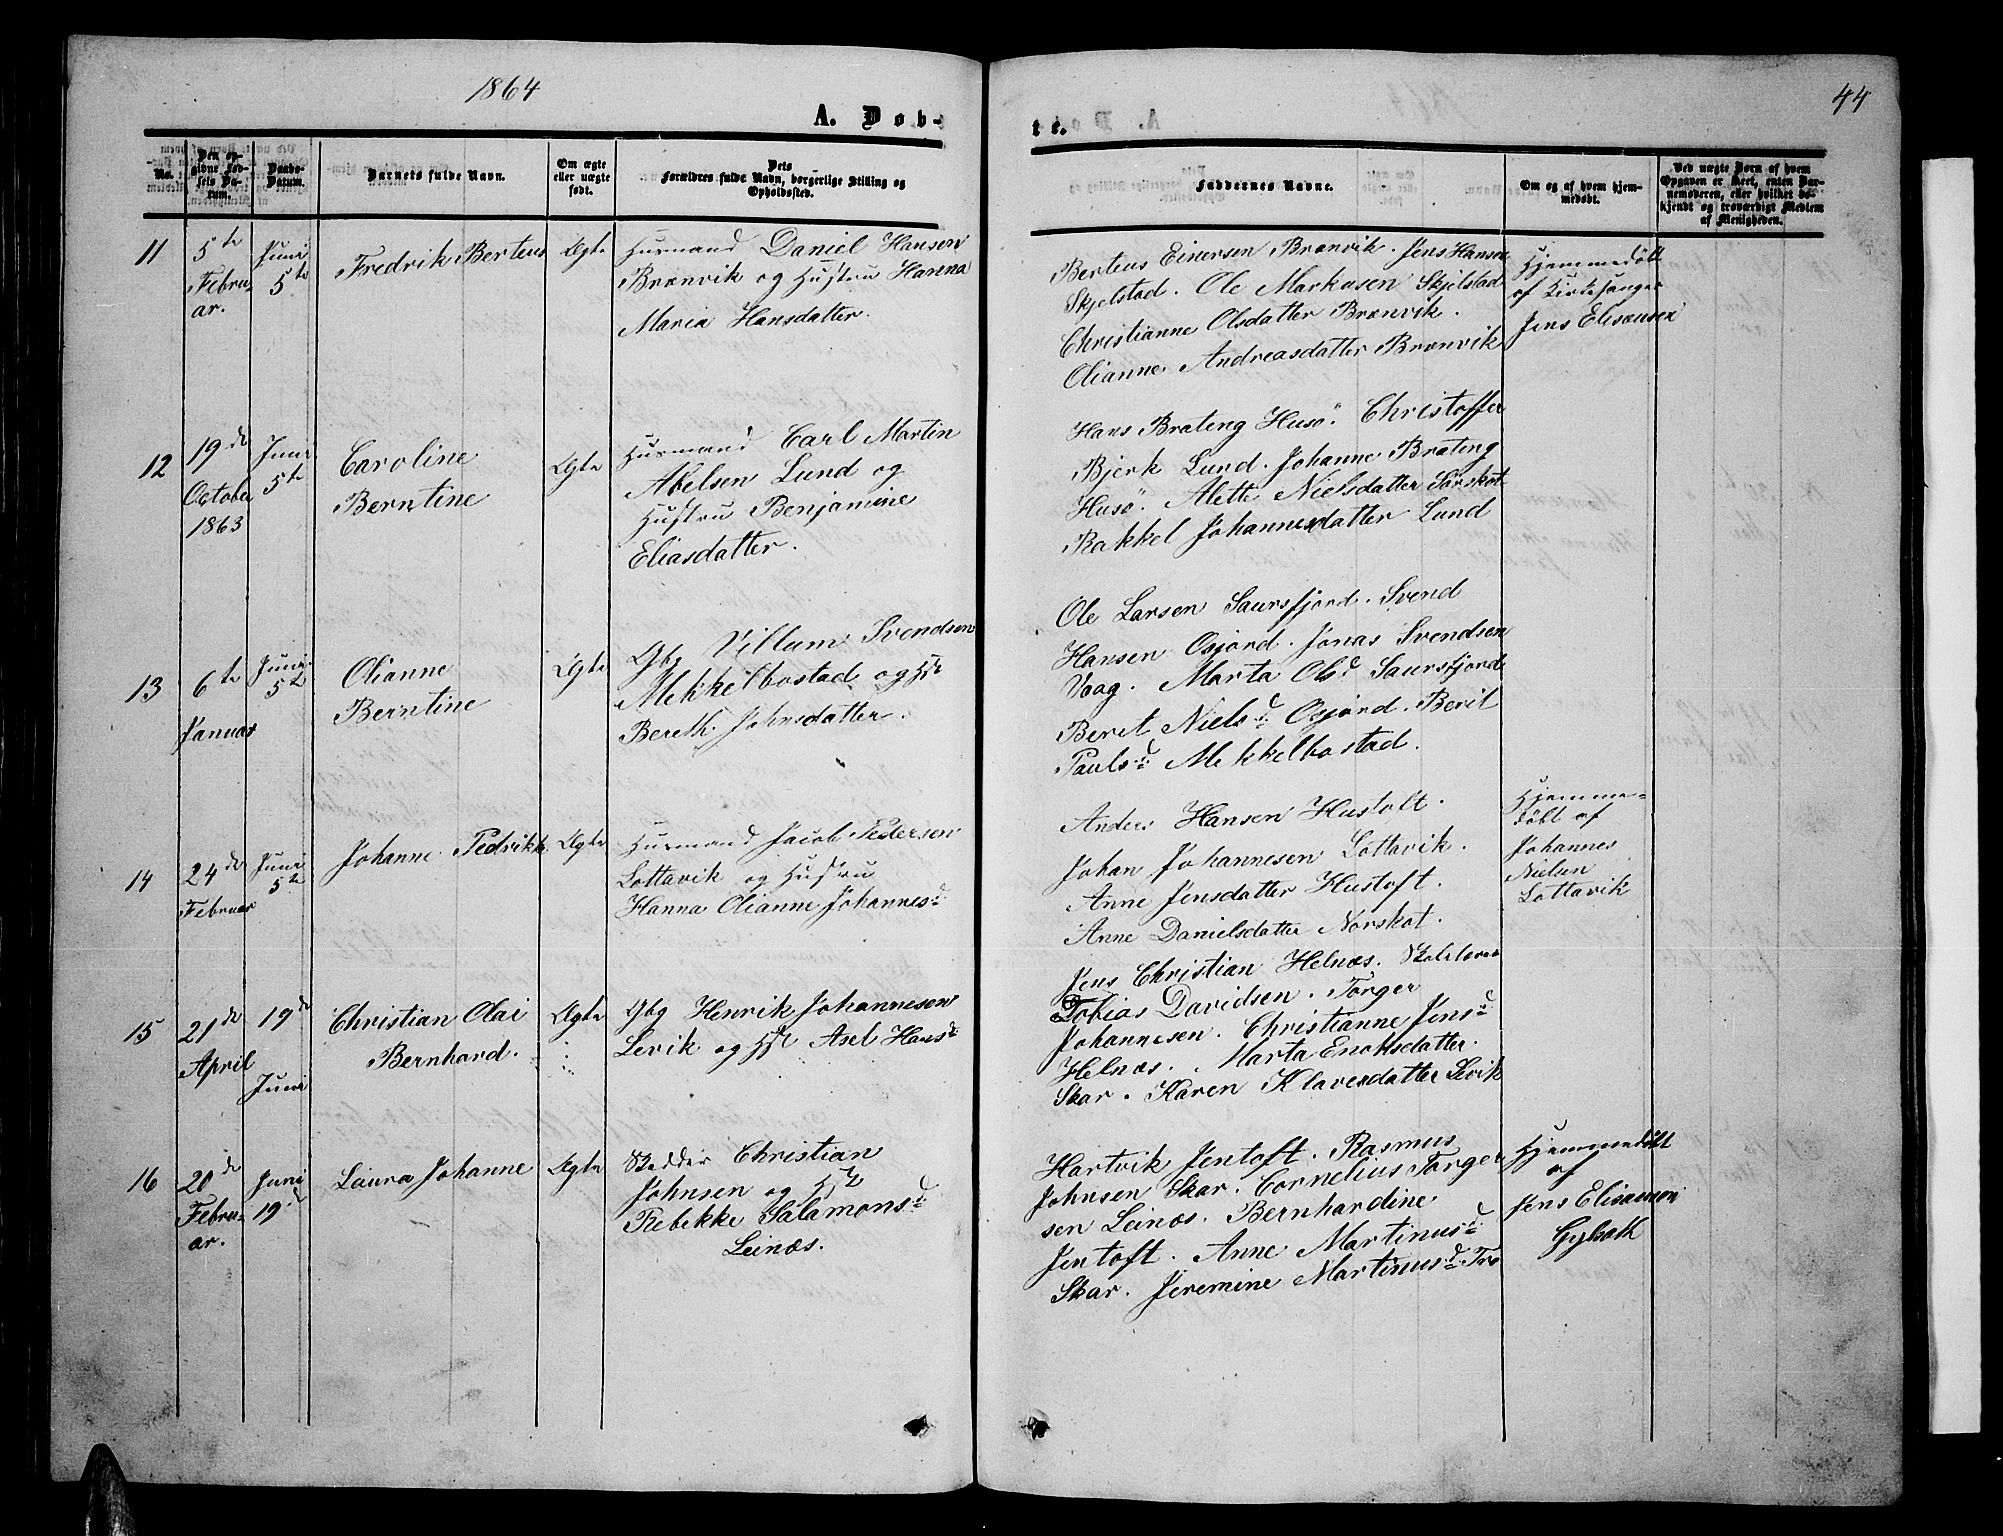 1864
A. Døb-
No.
Den op-
givne Fød-
sels Da-
tum.
Daabs-
Datum.
Barnets fulde Navn.
Om ægte
eller uægte
født.
Dets
Forældres fulde Navn, borgerlige Stilling og
Opholdssted.
11
5te
Febru-
ar.
Juni
5te
Fredrik Berteus
Ægte
Husmand Daniel Hansen
Brænvik og Hustru Hanna
Maria Hansdatter.
12
19de
October
1863
Juni
5te
Caroline
Berntine
Ægte
Husmand Carl Martin
Abelsen Lund og
Hustru Benjamine
Eliasdatter.
13
6te
Januar
Juni
5te
Olianne
Berntine
Ægte
Gbg Villum Svendsen
Mekkelbostad og H
Bereth Johnsdatter.
14
24de
Februar
Juni
5te
Johanne Pedrikke
Ægte
Husmand Jacob Pedersen
Lottavik og Hustru
Hanna Olianne Johannesd
15
21de
April
19de
Juni
Christian Olai
Bernhard.
Ægte
Gbg Henrik Johannesen
Levik og Hst Axel Hansd
16
20de
Febru-
ar.
Juni
19d
Laura Johanne
Ægte
Christian
Johnsen og Hst
Rebekke Salamonsd
Leinæs.
te.
44
Faddernes Navne.
Om og af hvem hjem-
medøbt.
Ved uægte Børn af hvem
Opgaven er skeet, enten Bar-
nemoderen, eller hvilket be-
kjendt og troværdigt Medlem
af Menigheden.
Berteus Einersen Brænvik. Jens Hansen
Skjelstad. Ole Markusen Skjelstad
Christianne Olsdatter Brænvik.
Olianne Andreasdatter Brænvik
Hjemmedöbt
af Kirkesanger
Jens Elisæusen
Hans Brateng Husö. Christoffer
Bjerk Lund. Johanne Brateng
Husö. Alette Nielsdatter Sörskot
Rakkel Johannesdatter Lund
Ole Larsen Saursfjord. Svend
Hansen Osjord. Jonas Svendsen
Vaag. Marta Olsd Saursfjord
Beret Nielsd Osjord. Berit
Paulsd Mekkelbostad.
Anders Hansen Hustoft.
Johan Johannesen Lottavik.
Anne Jensdatter Hustoft.
Anne Danielsdatter Nørskot.
Hjemme-
döbt af
Johannes
Nielsen
Lottavik
Jens Christian Helnæs. Skolelærer
Tobias Davidsen. Torger
Johannesen. Christianne Jensd
Helnæs. Marta Enoksdatter
Skar. Karen Klavesdatter Levik
Hartvik Jentoft. Rasmus
Johnsen Skar. Cornelius Torger
sen Leinæs. Bernhardine
Jentoft. Anne Martinusd
Skar. Jeremine Martinusd Trø
Hjemmedöbt
af
Jens Elisæusen